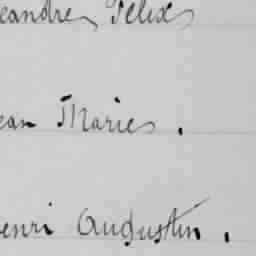 eandre Félix
ean Marie.
enri Augustin.